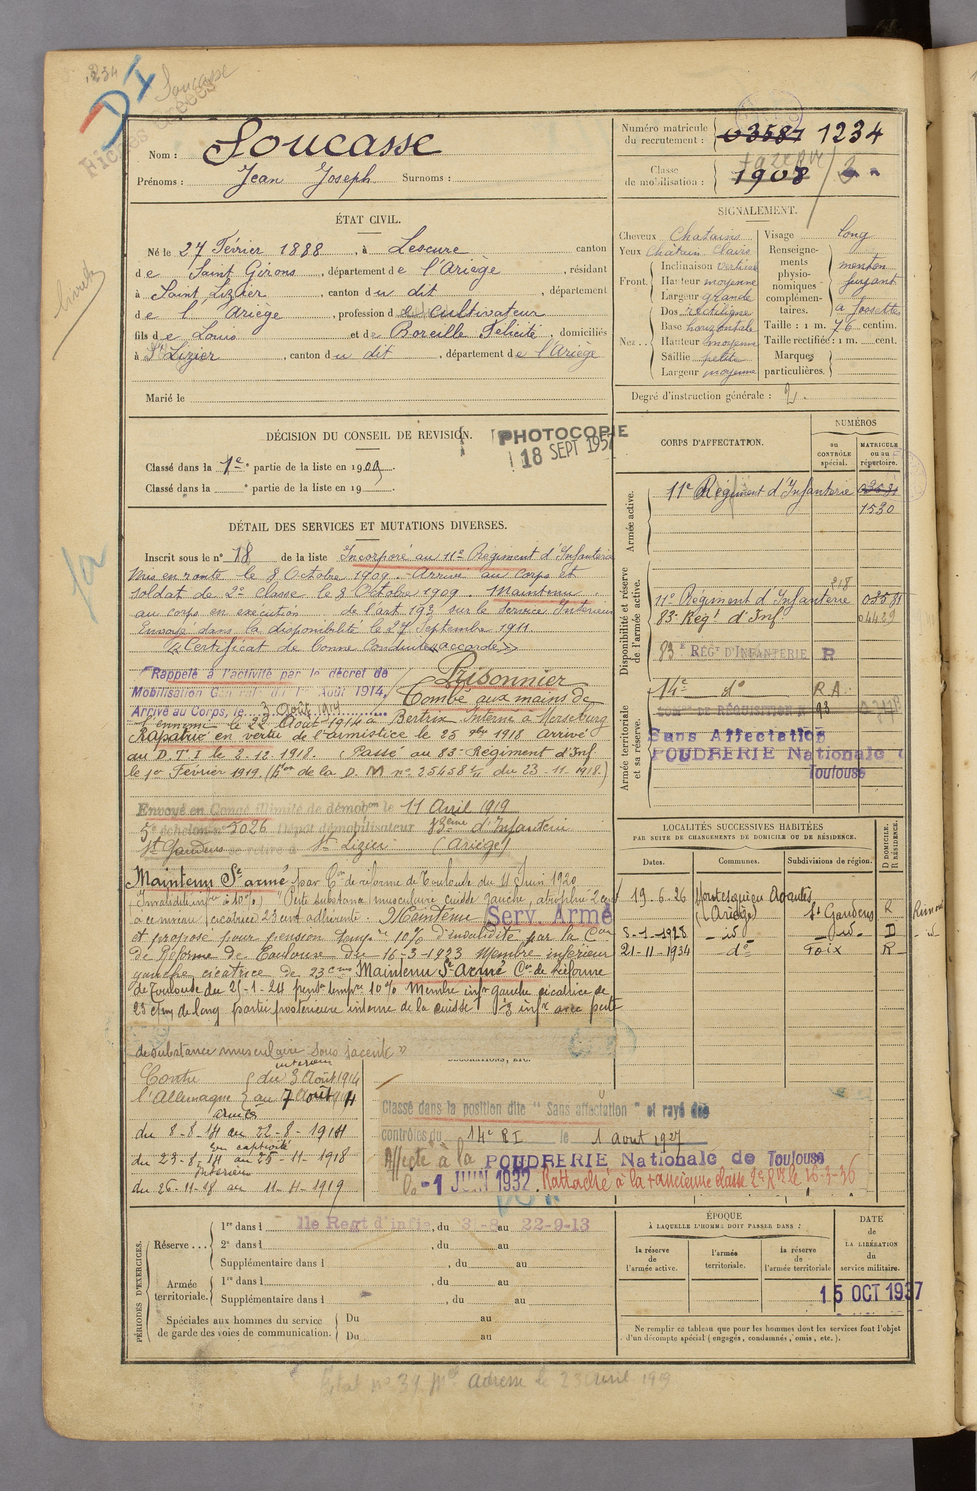 1234
DI
Soucasse
Fiches Créées
Nom : Soucasse
Prénoms : Jean Joseph Surnoms :
Numéro matricule du recrutement : 03587 1234
Classe de mobilisation : 1908
ÉTAT CIVIL.
Né le 27 Février 1888, à Lescure canton
de Saint Girons, département de l'Ariège, résidant
à Saint Lizier, canton du dit, département
de l'Ariège, profession de cultivateur
fils de Louis et de Boreille Félicité, domiciliés
à St Lizier, canton du dit, département de l'Ariège
Marié le
SIGNALEMENT.
Cheveux Chatains
Yeux Chatain Clairs
Front. Inclinaison verticale
Hauteur moyenne
Largeur grande
Nez Dos rectiligne
Base horizontale
Hauteur moyenne
Saillie petite
Largeur moyenne
Visage long
Renseignements physionomiques complémentaires. menton fuyant à fossette
Taille : 1 m. 76 centim.
Taille rectifiée : 1 m. cent.
Marques particulières.
Degré d'instruction générale : 2.
DÉCISION DU CONSEIL DE REVISION.
PHOTOCOPIE
18 SEPT 1957
Classé dans la 1e partie de la liste en 1909.
Classé dans la e partie de la liste en 19
DÉTAIL DES SERVICES ET MUTATIONS DIVERSES.
Inscrit sous le n° 18 de la liste Incorporé au 11e Régiment d'Infanterie
Mis en route le 8 Octobre 1909. Arrivé au Corps et
soldat de 2e classe le 8 Octobre 1909. Maintenu
au corps en exécution de l'art 193 sur le service Intérieur
Envoyé dans la disponibilité le 27 Septembre 1911
Certificat de bonne conduite "accordé"
Rappelé à l'activité par le décret de
Mobilisation Générale du 1er Août 1914,
Arrivé au Corps, le 3 Août 1914
Prisonnier
Tombé aux mains de
l'ennemi le 22 Août 1914 à Bertrix Interné à Merseburg
Rapatrié en vertu de l'armistice le 25 9bre 1918 arrivé
au D.T.I le 2.12.1918. Passé au 83e Régiment d'Inf
le 1er Février 1919. (de la D. M n° 25458 du 23-11-1918.)
Envoyé en Congé illimité de démobon le 11 Avril 1919
5e échelon n° 3026 Dépôt démobilisateur 83ème d'Infanterie
St Gaudens se retire à St Lizier (Ariège)
Maintenu Sce armé par Con de réforme de Toulouse du 4 Juin 1920
Invalidité infre à 10% "Perte substance musculaire cuisse gauche, atrophie 2 cent
à ce niveau cicatrice 23 cent adhérente. Maintenu Serv. Armé
et proposé pour pension tempre 10% d'invalidité par la Con
de Réforme de Toulouse du 16-3-1923 Membre inférieur
gauche cicatrice de 23 cms Maintenu Sce Armé Con de Réforme
de Toulouse du 25-1-24 penson tempre 10% Membre infr gauche cicatrice de
23 ctm de long partie postérieure interne de la cuisse 1/3 infr avec perte
de substance musculaire sous jacente"
CORPS D'AFFECTATION.
NUMÉROS
au CONTRÔLE spécial.
MATRICULE ou au répertoire.
Armée active.
11e Régiment d'Infanterie 1530
Disponibilité et réserve de l'armée active.
218
11e Régiment d'Infanterie 03581
83e Régt d'Inf. 04429
83e RÉGt D'INFANTERIE R
Armée territoriale et sa réserve.
14e do R.A.
DE RÉQUISITION 93
Sans Affectation
POUDRERIE Nationale
Toulouse
LOCALITÉS SUCCESSIVES HABITÉES
PAR SUITE DE CHANGEMENTS DE DOMICILE OU DE RÉSIDENCE.
Dates. Communes. Subdivisions de région. D DOMICILE. R RÉSIDENCE.
19.6.26 Montesquieu Avantès (Ariège) St Gaudens R
8-1-1928 id id D
21-11-1934 do Foix R
Contre l'Allemagne
intérieur du 3 Août 1914 au 7 Août 1914
armées du 8-8-14 au 22-8-1914
en captivité du 23-8-14 au 25-11-1918
Intérieur du 26-11-18 au 11-4-1919
DÉCORATIONS, ETC.
Classé dans la position dite "Sans affectation" et rayé des
contrôles du 14e RI le 1 aout 1927
Affecté à la POUDRERIE Nationale de Toulouse
le -1 JUIN 1932. Rattaché à la + ancienne classe 2e Rve le 26-3-36
PÉRIODES D'EXERCICES.
Réserve
1re dans l 11e Regt d'infie, du 31-8 au 22-9-13
2e dans l , du au
Supplémentaire dans l , du au
Armée territoriale.
1re dans l , du au
Supplémentaire dans l , du au
Spéciales aux hommes du service de garde des voies de communication.
Du au
Du au
ÉPOQUE
À LAQUELLE L'HOMME DOIT PASSER DANS :
la réserve de l'armée active.
l'armée territoriale.
la réserve de l'armée territoriale
DATE de LA LIBÉRATION du service militaire.
15 OCT 1937
Ne remplir ce tableau que pour les hommes dont les services font l'objet
d'un décompte spécial (engagés, condamnés, omis, etc.).
Etat n° 39 Adresse le 23 avril 1919